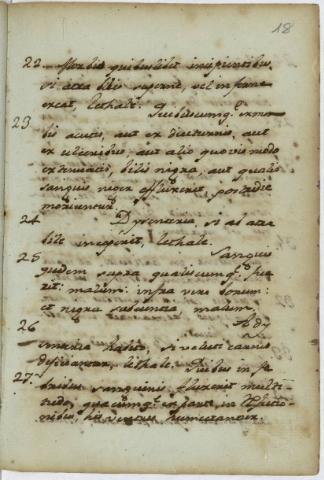 18
22 Morbis quibuslibet incipientibus
si atra bilis superne, vel inferne
exeat, lethale.
23 Quibuscumq. ex mor-
bis acutis, aut ex diuturnis, aut
ex ulceribus, aut alio quovis modo
extenuatis, bilis nigra, aut qualis
sanguis niger effluxerit, postridie
moriuntur.
24 Dysenteria, si ab atra
bile inceperit, lethale.
25 Sanguis
quidem supra qualiscumq. fue-
rit: malum: infra vero bonum:
et nigra subeuntia, malum,
26 A dy-
senteria habito, si velut carnes
deficiantur, lethale. Quibus in fe-
27. bribus sanguinis fluxerit multi-
tudo, quacumq. ex parte, in refectio-
nibus, his ventres humectantur.